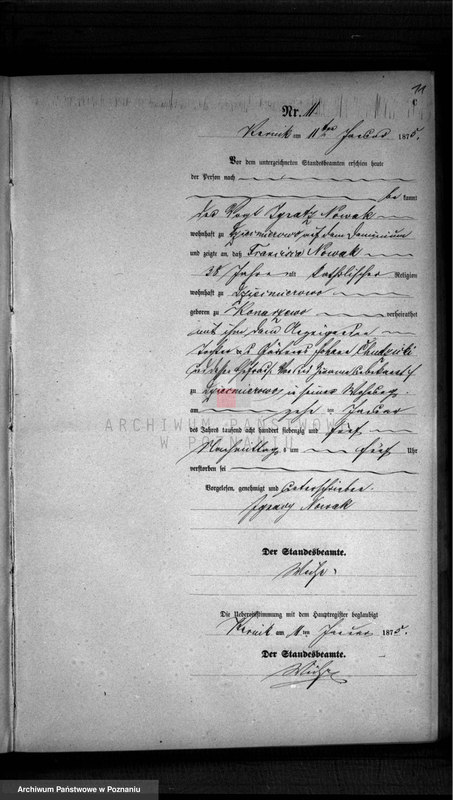 11
C
Nr. 11
Kurnik am 11ten Januar 1875.
Vor dem unterzeichneten Standesbeamten erschien heute
der Person nach
be kannt
der Vogt Ignatz Nowak
wohnhaft zu Dziecmierowo, auf dem Dominium
und zeigte an, daß Francisca Nowak
38 Jahre alt katholischer Religion
wohnhaft zu Dziecmierowo
geboren zu Konarzewo verheirathet
mit ihm dem Anzeigenden
Tochter des Johann
zu Dziecmierowo in seiner Wohnung
am zehn ten Januar
des Jahres tausend acht hundert siebenzig und fünf
Nachmittags um fünf Uhr
verstorben sei
Vorgelesen, genehmigt und unterschrieben.
Ignacy Nowak
Der Standesbeamte.
Die Uebereinstimmung mit dem Hauptregister beglaubigt
Kurnik am 11 ten Januar 1875.
Der Standesbeamte.
ARCHIWUM PAŃSTWOWE
W POZNANIU
Archiwum Państwowe w Poznaniu